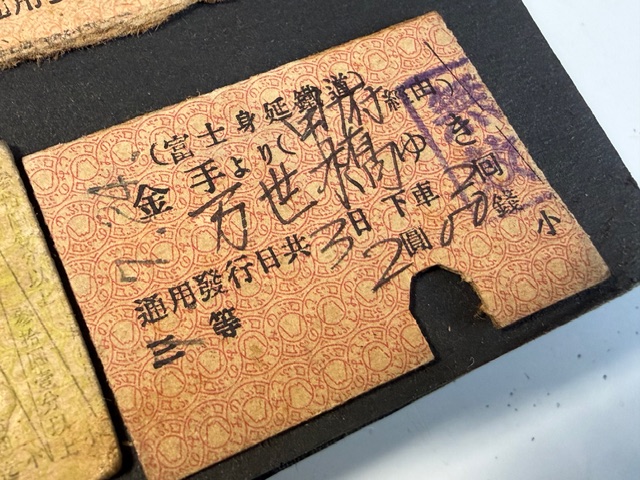 (富士身延鐵道)
甲府經由)
金手より(
万世橋ゆき
通用發行日共3日下車2回
三等 2圓00錢
小